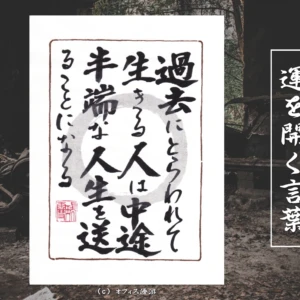 運を開く言葉
過去にとらわれて
生きる人は中途
半端な人生を送
ることになる
(C) オフィス優源